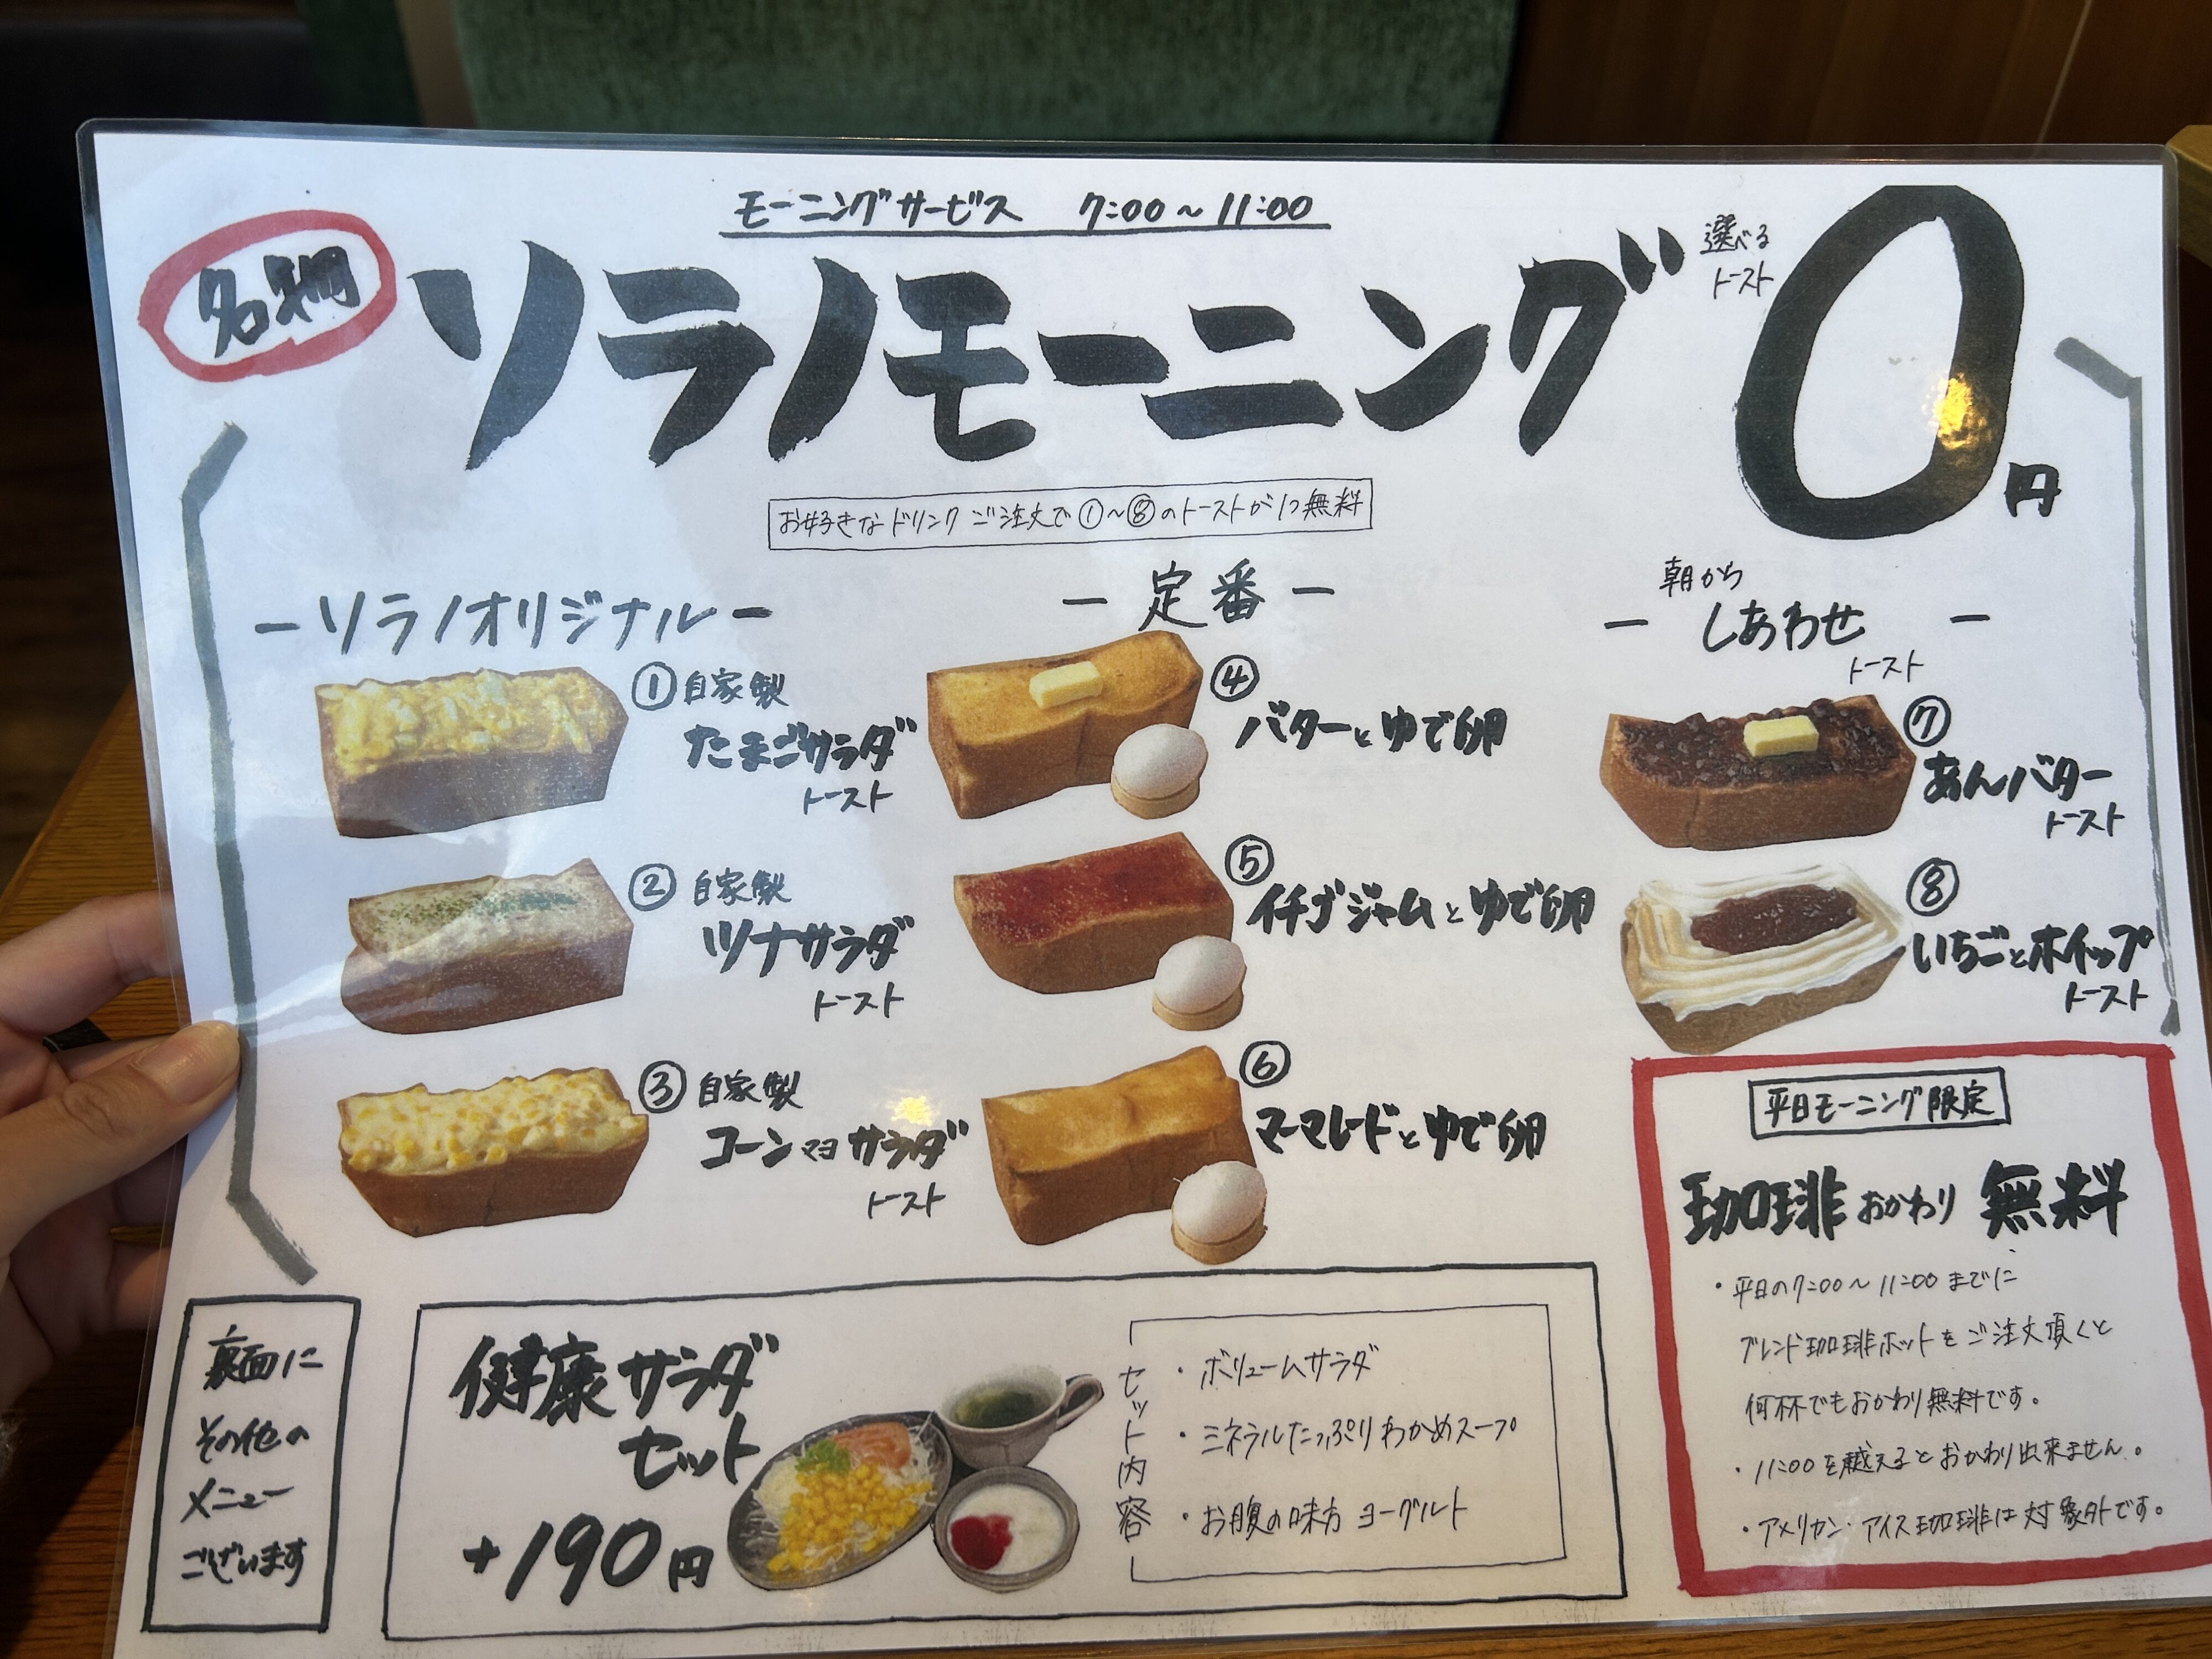 モーニングサービス 7:00～11:00
名物
ソラノモーニング
選べる
トースト
0円
お好きなドリンクご注文で①～⑧のトーストが1つ無料
ーソラノオリジナルー
①自家製
たまごサラダ
トースト
②自家製
ツナサラダ
トースト
③自家製
コーンマヨサラダ
トースト
ー定番ー
④
バターとゆで卵
⑤
イチゴジャムとゆで卵
⑥
マーマレードとゆで卵
朝から
ーしあわせー
トースト
⑦
あんバター
トースト
⑧
いちごとホイップ
トースト
平日モーニング限定
珈琲おかわり無料
・平日の7:00～11:00までに
ブレンド珈琲ホットをご注文頂くと
何杯でもおかわり無料です。
・11:00を越えるとおかわり出来ません。
・アメリカン・アイス珈琲は対象外です。
裏面に
その他の
メニュー
ございます
健康サラダ
セット
+190円
セット内容
・ボリュームサラダ
・ミネラルたっぷりわかめスープ
・お腹の味方ヨーグルト